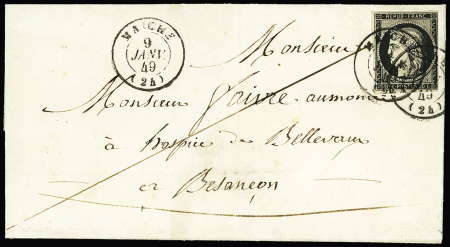 MAICHE
9
JANV.
49
(24)
REPUB. FRANC.
Monsieur
Monsieur Faivre aumon
à hospice de Bellevaux
à Besançon
49
(24)